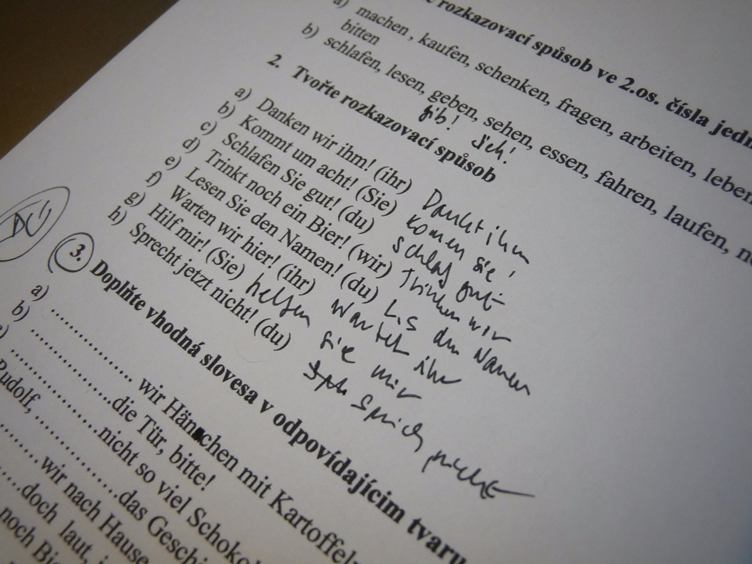 rozkazovací spůsob ve 2.os. čísla jedn
a) machen , kaufen, schenken, fragen, arbeiten, leben
bitten
b) schlafen, lesen, geben, sehen, essen, fahren, laufen,
gib! sieh!
2. Tvořte rozkazovací spůsob
a) Danken wir ihm! (ihr) Dankt ihm
b) Kommt um acht! (Sie) Komen sie!
c) Schlafen Sie gut! (du) Schlaf gut
d) Trinkt noch ein Bier! (wir) Trinken wir
e) Lesen Sie den Namen! (du) Lis den Namen
f) Warten wir hier! (ihr) Wartet ihr
g) Hilf mir! (Sie) helfen sie mir
h) Sprecht jetzt nicht! (du) Sprich nicht
3. Doplňte vhodná slovesa v odpovídajícím tvaru
a) .................... wir Hänschen mit Kartoffel
b) .................... die Tür, bitte!
.................... nicht so viel Schoko
Rudolf, .................... das Geschi
.......... wir nach Hause
.....doch laut, i
noch Bi